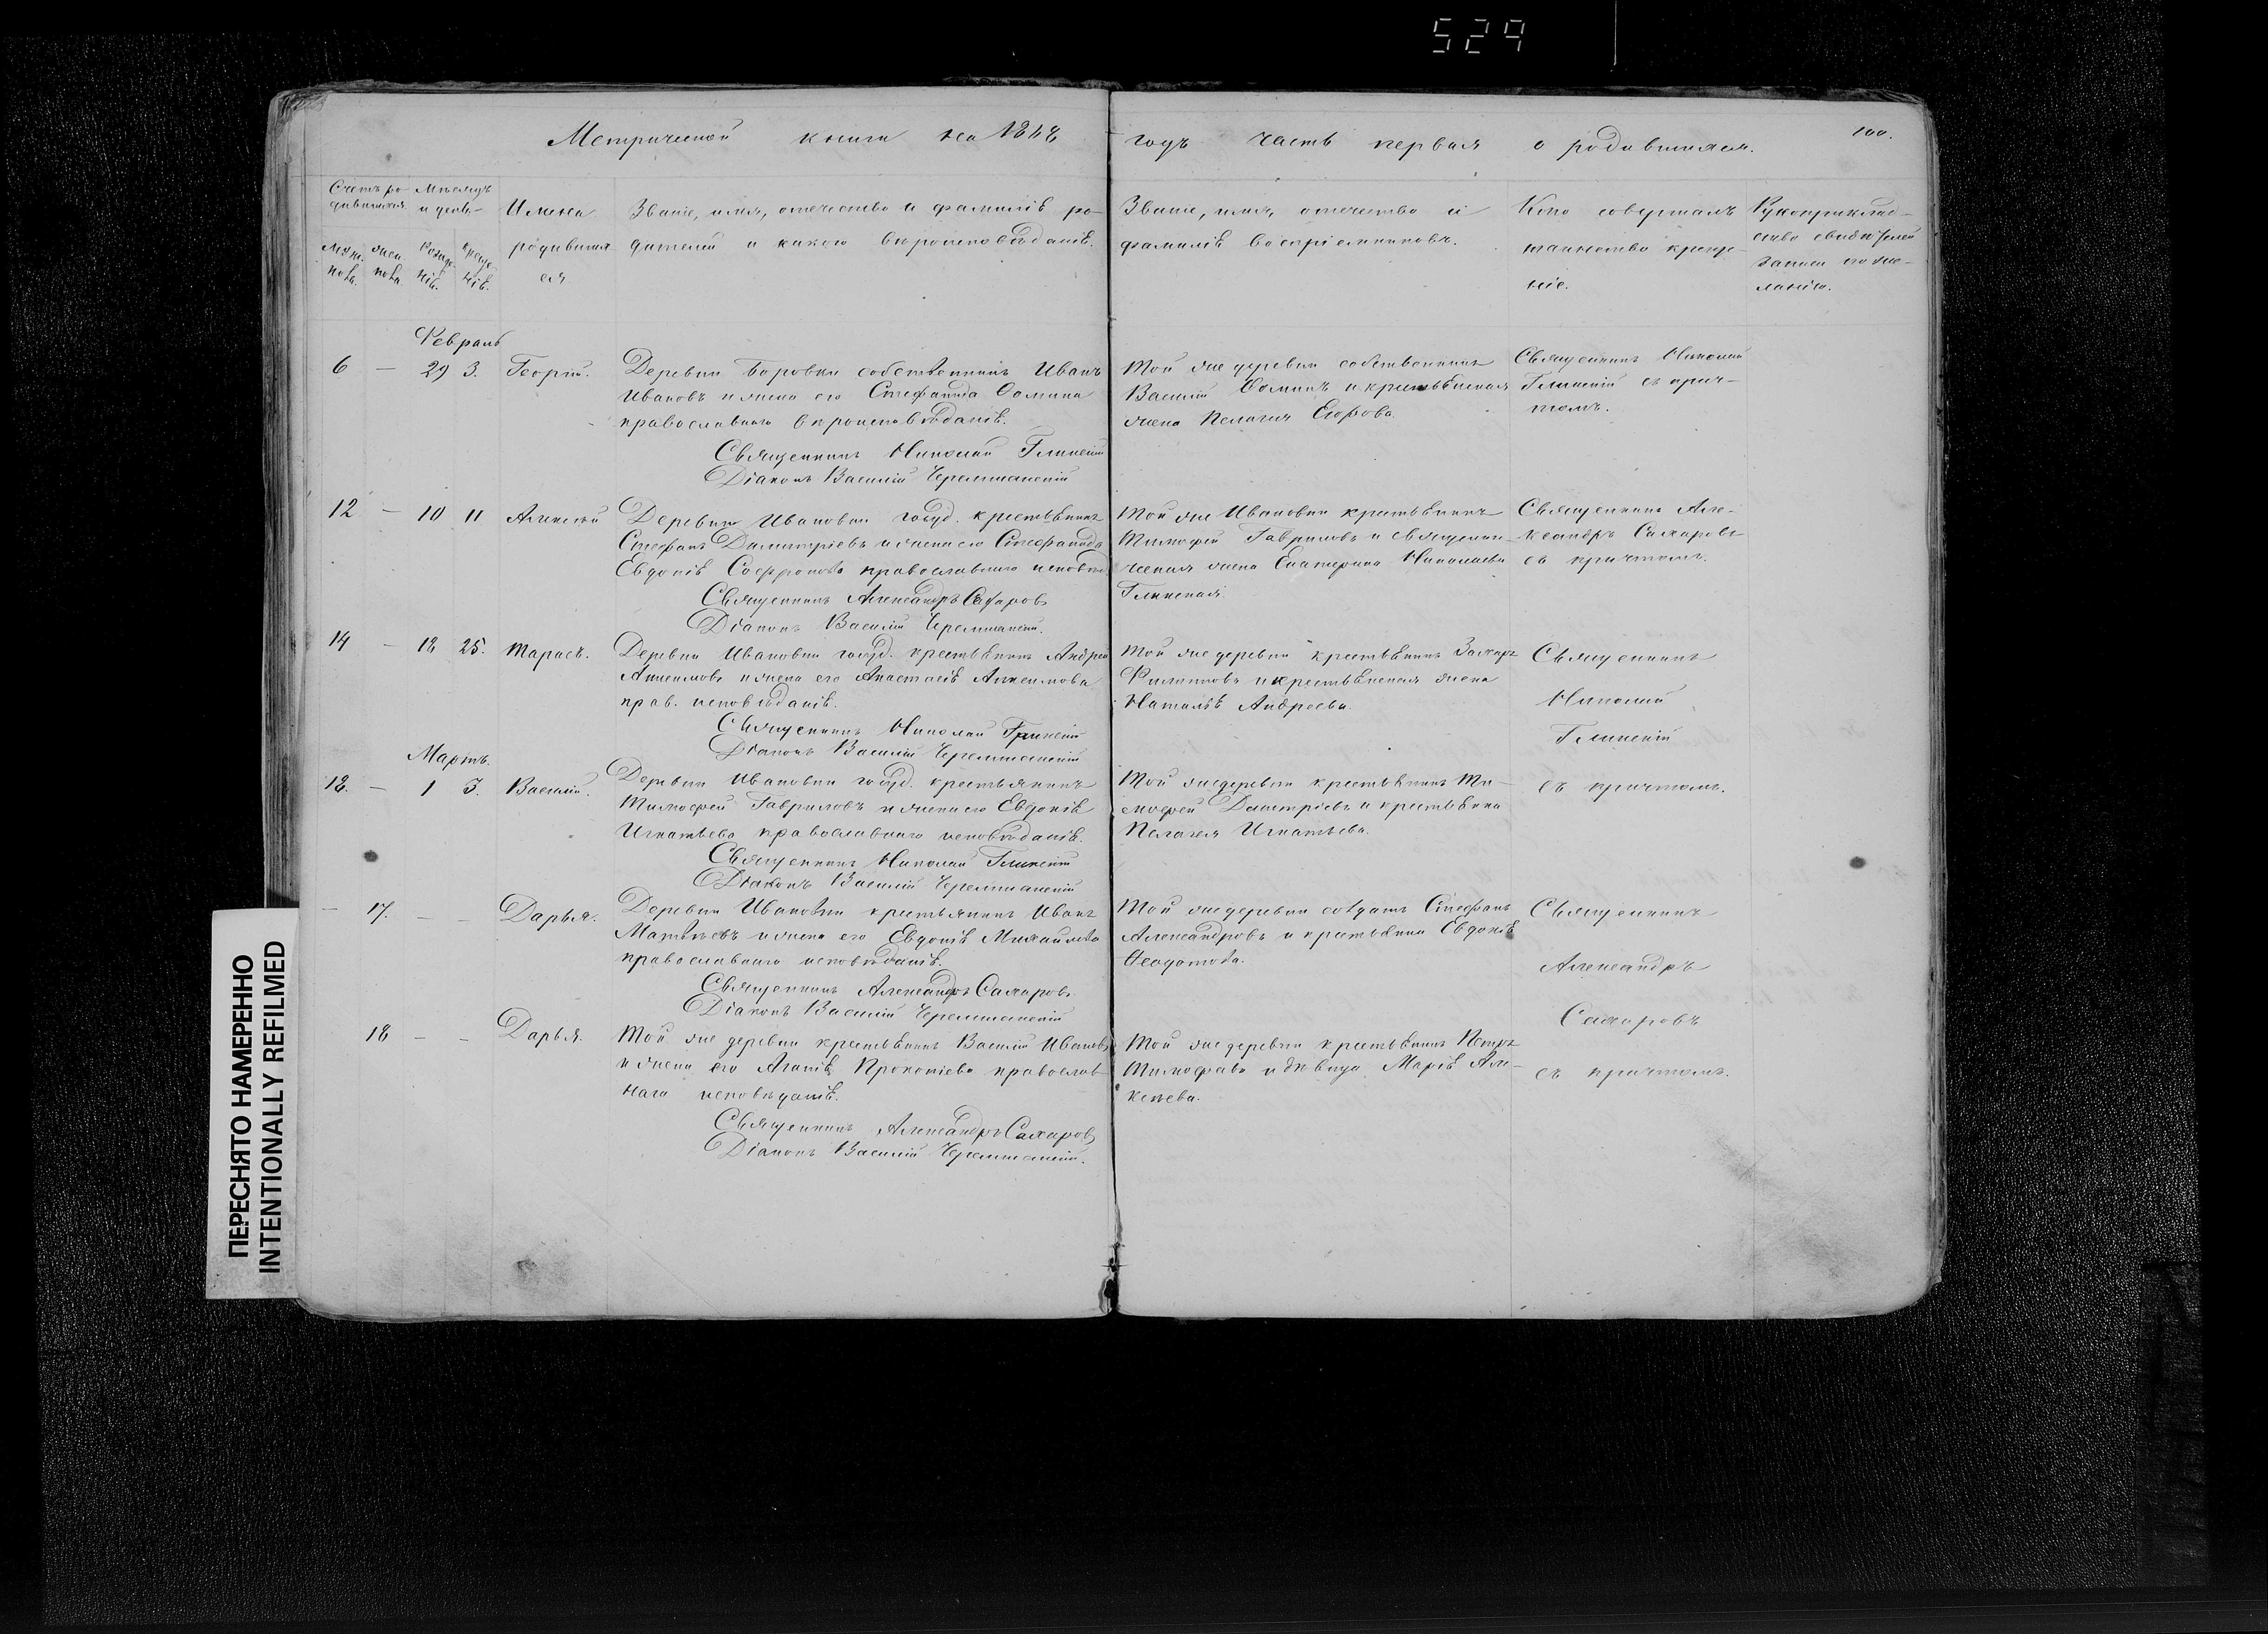 529
Метрической книги на 1868
годъ часть первая о родившихся.
100.
Счетъ ро-
дившихся.
Мѣсяцъ
и день.
муж.
пола.
жен.
пола.
рожде-
нія.
креще-
нія.
Имена
родивших
ся
Званіе, имя, отечество и фамилія ро-
дителей и какого вѣроисповѣданія.
Званіе, имя, отечество и
фамилія воспріемниковъ.
Кто совершалъ
таинство креще-
ніе.
Рукоприклад-
ство свидѣтелей
записи по же-
ланію.
Февраль
6 — 29 3. Георгій.
Деревни Боровки собственникъ Иванъ
Ивановъ и жена его Стефанида Ѳомина
православнаго вѣроисповѣданія.
Священникъ Николай Глинскій
Діаконъ Василій Черемшанскій
Той же деревни собственникъ
Василій Ѳоминъ и крестьянская
жена Пелагія Егорова.
Священникъ Николай
Глинскій съ прич-
томъ.
12 — 10 11 Алексѣй
Деревни Ивановки госуд. крестьянинъ
Стефанъ Димитріевъ и жена его
Евдокія Софронова православнаго исповѣд
Священникъ Александръ Сахаровъ
Діаконъ Василій Черемшанскій.
Той же Ивановки крестьянинъ
Тимофей Гавриловъ и священни-
ческая жена Екатерина Николаева
Глинская.
Священникъ Але-
ксандръ Сахаровъ
съ причтомъ.
14 — 18 25. Тарасъ.
Деревни Ивановки госуд. крестьянинъ Андрей
Анисимовъ и жена его Анастасія Анисимова
прав. исповѣданія.
Священникъ Николай Глинскій
Діаконъ Василій Черемшанскій
Той же деревни крестьянинъ Захаръ
Филиповъ и крестьянская жена
Наталья Андреева.
Священникъ
Николай
Глинскій
съ причтомъ.
Мартъ.
18. — 1 3. Василій.
Деревни Ивановки госуд. крестьянинъ
Тимофей Гавриловъ и жена его Евдокія
Игнатьева православнаго исповѣданія.
Священникъ Николай Глинскій
Діаконъ Василій Черемшанскій
Той же деревни крестьянинъ Ти-
мофей Дмитріевъ и крестьянка
Пелагея Игнатьева.
— 17. — — Дарья.
Деревни Ивановки крестьянинъ Иванъ
Матвѣевъ и жена его Евдокія Михайлова
православнаго исповѣданія.
Священникъ Александръ Сахаровъ
Діаконъ Василій Черемшанскій
Той же деревни солдатъ Стефанъ
Александровъ и крестьянка Евдокія
Ѳеодотова.
Священникъ
Александръ
Сахаровъ
съ причтомъ.
18 — — Дарья.
Той же деревни крестьянинъ Василій Ивановъ
и жена его Агапія Прокопіева православ-
наго исповѣданія.
Священникъ Александръ Сахаровъ
Діаконъ Василій Черемшанскій.
Той же деревни крестьянинъ Петръ
Тимофѣевъ и дѣвица Марія Але-
ксѣева.
ПЕРЕСНЯТО НАМЕРЕННО
INTENTIONALLY REFILMED